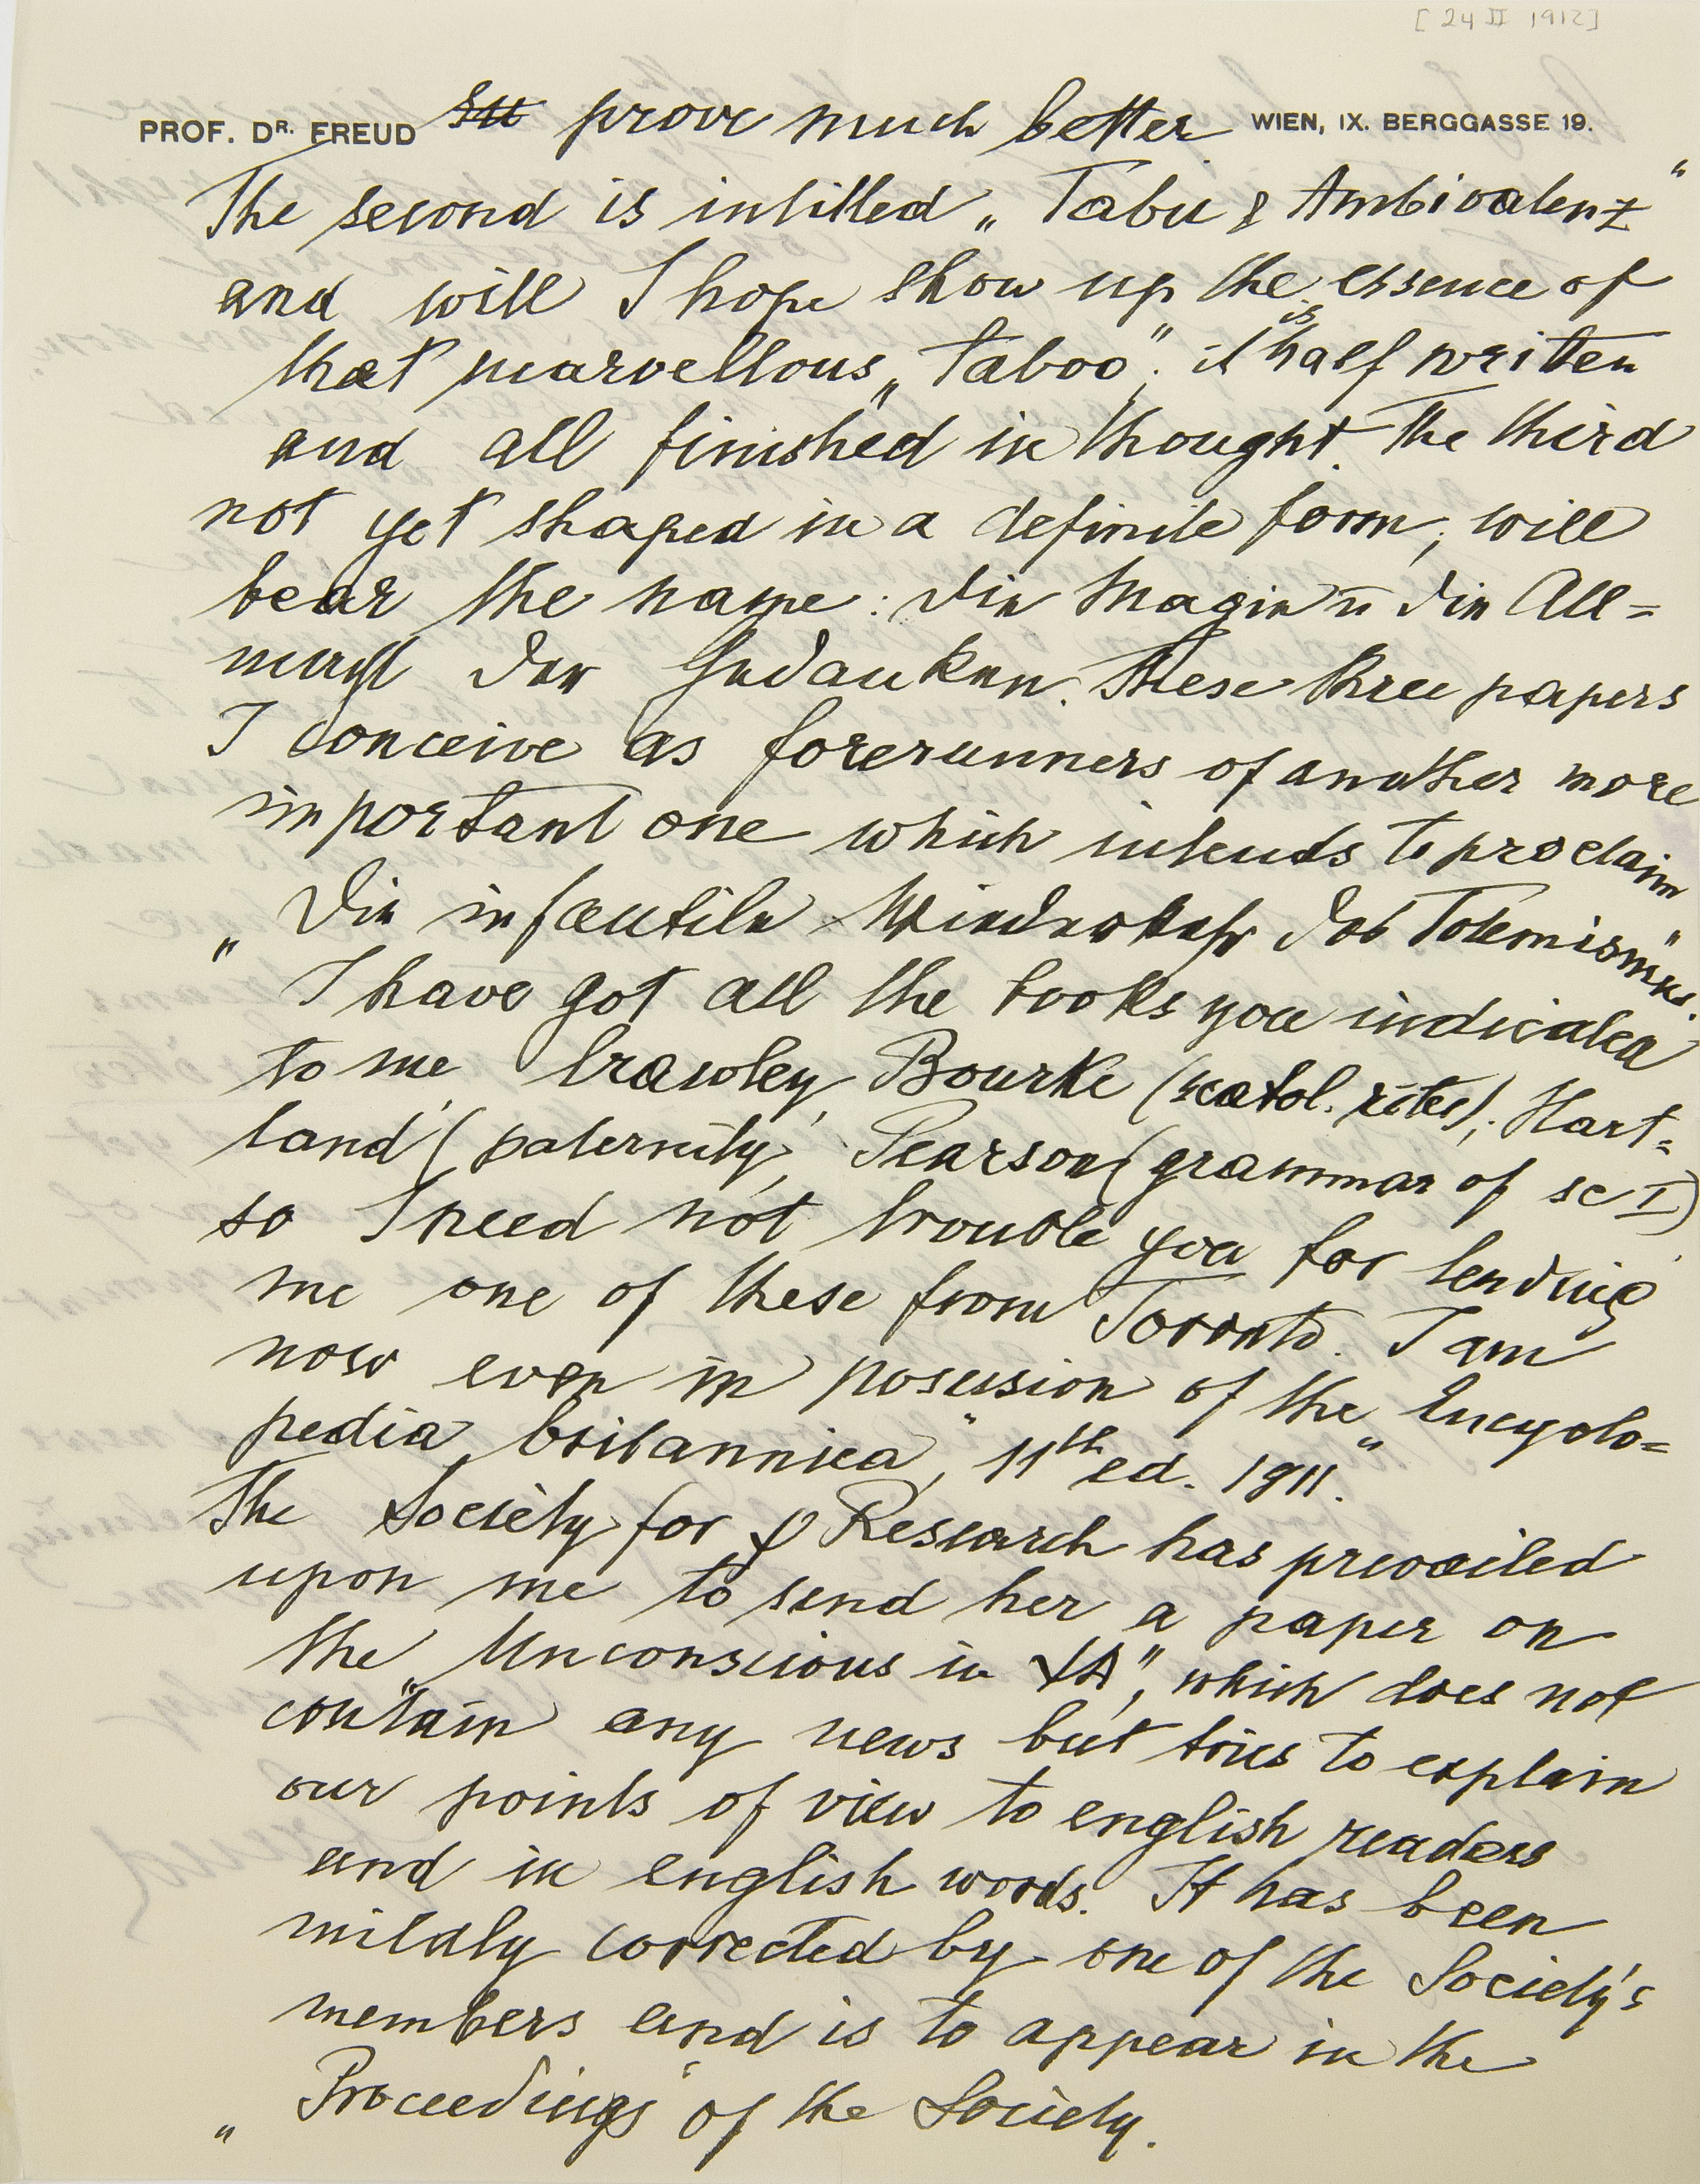 [24 II 1912]
PROF. DR. FREUD prove much better WIEN, IX. BERGGASSE 19.
The second is intitled „Tabu & Ambivalenz“
and will I hope show up the essence of
that marvellous „Taboo“; it is half written
and all finished in thought. The third
not yet shaped in a definite form, will
bear the name: Die Magie u die All=
macht der Gedanken. These three papers
I conceive as forerunners of another more
important one which intends to proclaim
„Die infantile Wiederkehr des Totemismus“.
I have got all the books you indicated
to me, Crawley, Bourke (scatol. rites), Hart=
land (paternity, Pearson (grammar of sc I)
so I need not trouble you for lending
me one of these from Toronto. I am
now even in posession of the „Encyclo=
pedia britannica“, 11th ed. 1911.
The Society for ψ Research has prevailed
upon me to send her a paper on
the „Unconscious in ΨA“, which does not
contain any news but tries to explain
our points of view to english readers
and in english words. It has been
mildly corrected by one of the Society's
members and is to appear in the
„Proceedings“ of the Society.